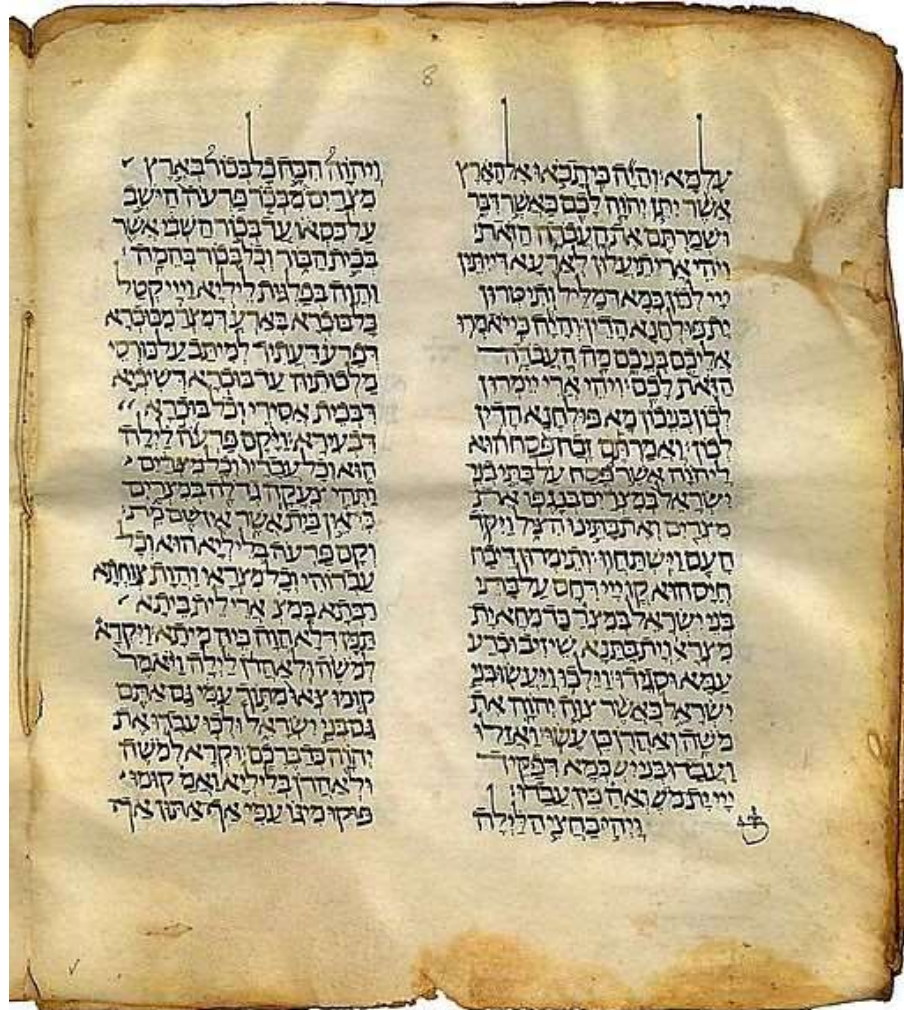 עלמא׃ והיה כי תבאו אל הארץ
אשר יתן יהוה לכם כאשר דבר
ושמרתם את העבדה הזאת׃
ויהי ארי תיעלון לארעא דייתין
ייי לכון כמא דמליל ותיטרון
ית פולחנא הדין׃ והיה כי יאמרו
אליכם בניכם מה העבדה
הזאת לכם׃ ויהי ארי יימרון
לכון בניכון מא פולחנא הדין
לכון׃ ואמרתם זבח פסח הוא
ליהוה אשר פסח על בתי בני
ישראל במצרים בנגפו את
מצרים ואת בתינו הציל ויקד
העם וישתחוו׃ ותימרון דיבח
חיס הוא קד ייי דחס על בתי
בני ישראל במצר כד מחא ית
מצראי וית בתנא שיזיב וכרע
עמא וסגידו׃ וילכו ויעשו בני
ישראל כאשר צוה יהוה את
משה ואהרן כן עשו׃ ואזלו
ועבדו בני יש כמא דפקיד
ייי ית מש ואה כין עבדו׃
ויהי בחצי הלילה
ויהוה הכה כל בכור בארץ
מצרים מבכר פרעה הישב
על כסאו עד בכור השבי אשר
בבית הבור וכל בכור בהמה׃
והוה בפלגות ליליא וייי קטל
כל בוכרא בארע דמצר מבוכרא
דפרע דעתיד למיתב על כורסי
מלכותיה עד בוכרא דשיביא
דבבית אסירי וכל בוכרא
דבעירא׃ ויקם פרעה לילה
הוא וכל עבדיו וכל מצרים
ותהי צעקה גדלה במצרים
כי אין בית אשר אין שם מת׃
וקם פרעה בליליא הוא וכל
עבדוהי וכל מצראי והות צוחתא
רבתא במצ ארי לית ביתא
תמן דלא הוה ביה מיתא׃ ויקרא
למשה ולאהרן לילה ויאמר
קומו צאו מתוך עמי גם אתם
גם בני ישראל ולכו עבדו את
יהוה כדברכם׃ וקרא למשה
ולאהרן בליליא ואמ קומו
פוקו מיגו עמי אף אתון אף